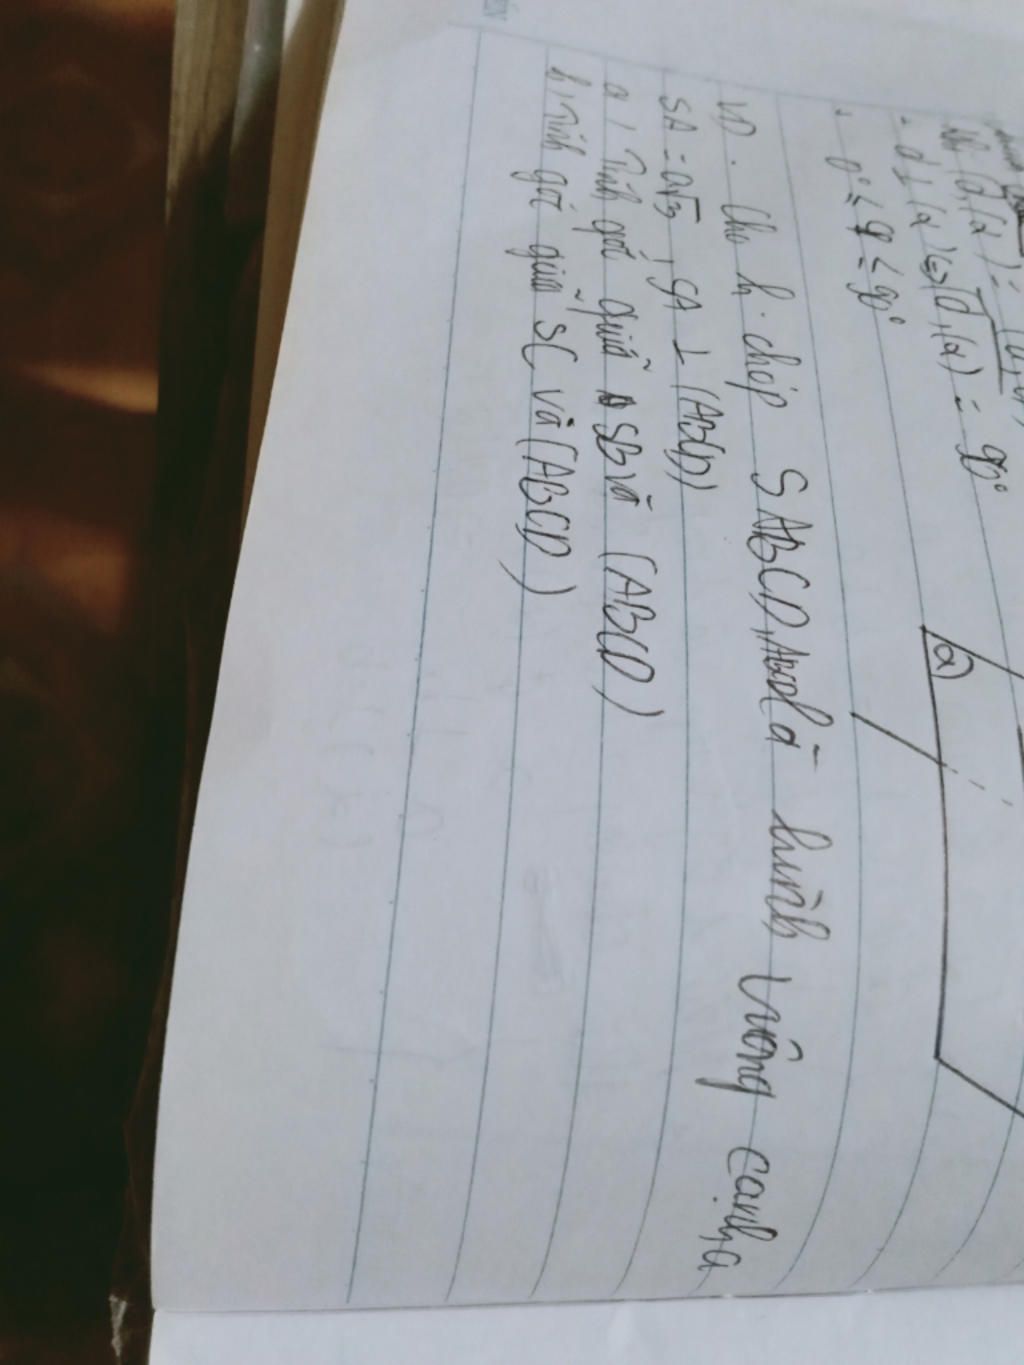 d,(α) =
d ⊥ (α) <=> d,(α) = 90°
0° ≤ φ ≤ 90°
α
VD. Cho h.chóp SABCD, ABCD là hình vuông cạnh a
SA = a√3, SA ⊥ (ABCD)
a, Tính góc giữa SB và (ABCD)
b, Tính góc giữa SC và (ABCD)